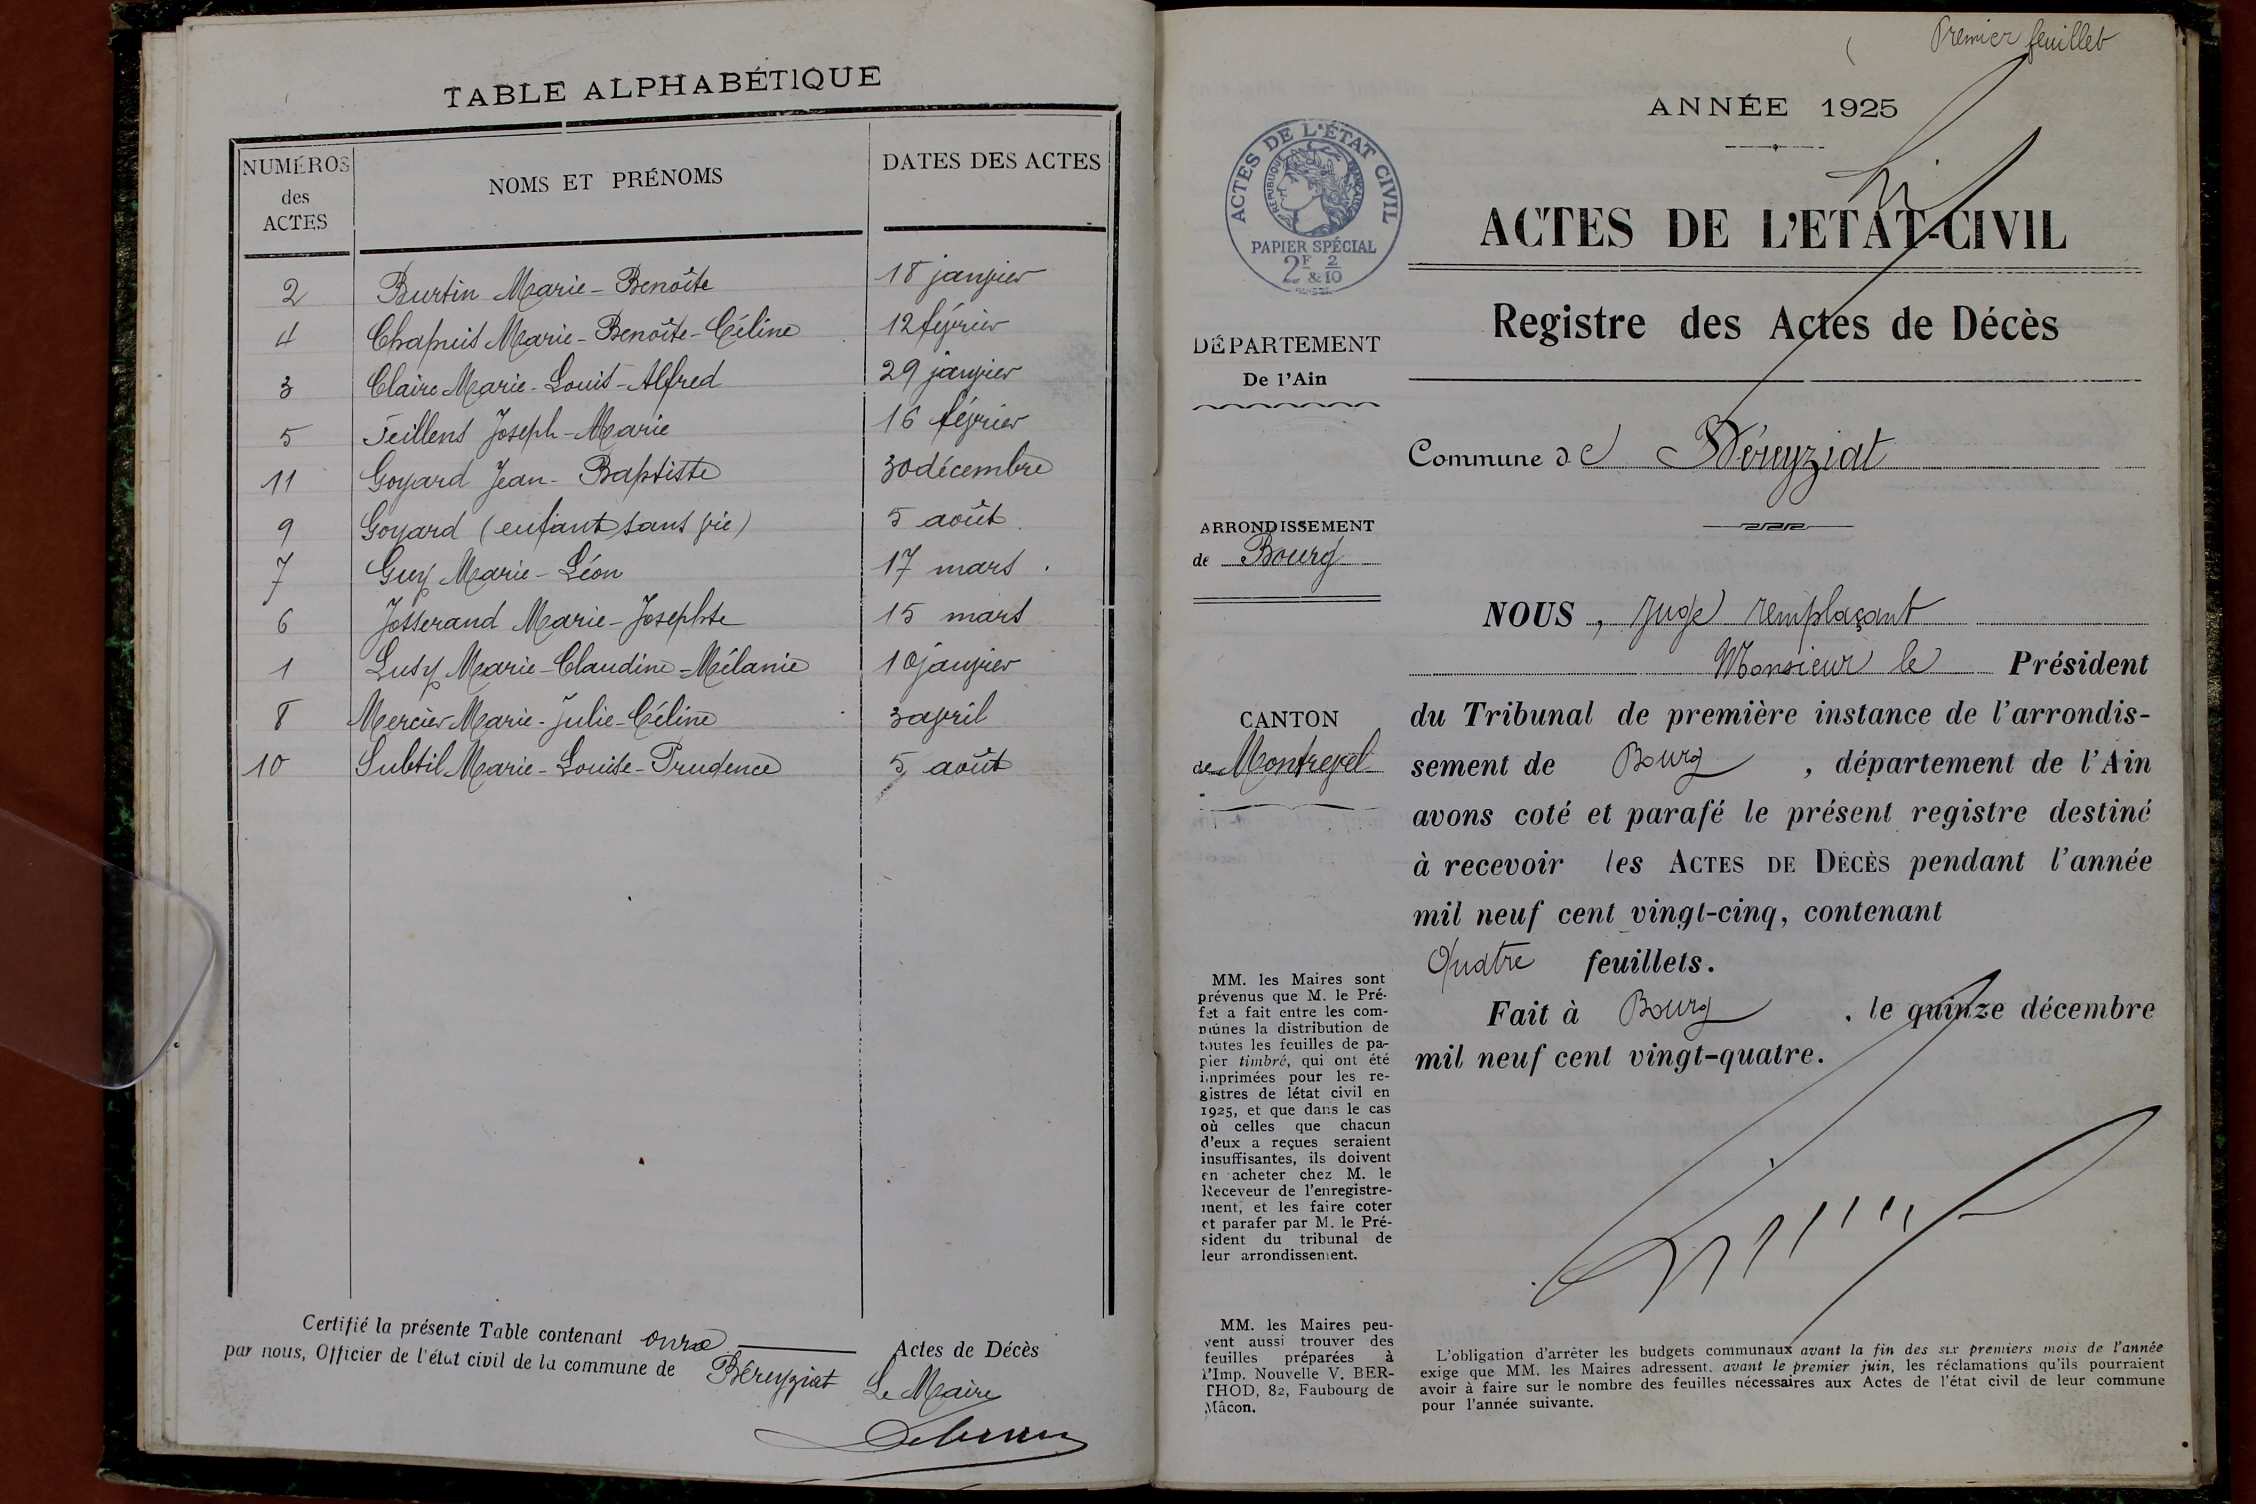 TABLE ALPHABÉTIQUE
NUMÉROS des ACTES
NOMS ET PRÉNOMS
DATES DES ACTES
2 Burtin Marie-Benoîte 18 janvier
4 Chapuis Marie-Benoîte-Céline 12 février
3 Claire Marie-Louis-Alfred 29 janvier
5 Feillens Joseph-Marie 16 février
11 Goyard Jean-Baptiste 30 décembre
9 Goyard (enfant sans vie) 5 août
7 Guy Marie-Léon 17 mars
6 Josserand Marie-Josephte 15 mars
1 Lusy Marie-Claudine-Mélanie 10 janvier
8 Mercier Marie-Julie-Céline 3 avril
10 Subtil Marie-Louise-Prudence 5 août
Certifié la présente Table contenant onze Actes de Décès
par nous, Officier de l'état civil de la commune de Béreyziat
Le Maire
Premier feuillet
ANNÉE 1925
ACTES DE L'ÉTAT CIVIL
RÉPUBLIQUE FRANÇAISE
PAPIER SPÉCIAL
2F & 2/10
ACTES DE L'ETAT-CIVIL
Registre des Actes de Décès
DÉPARTEMENT
De l'Ain
Commune de Béreyziat
ARRONDISSEMENT
de Bourg
CANTON
de Montrevel
NOUS, Juge remplaçant
Monsieur le Président
du Tribunal de première instance de l'arrondis-
sement de Bourg, département de l'Ain
avons coté et parafé le présent registre destiné
à recevoir les ACTES DE DÉCÈS pendant l'année
mil neuf cent vingt-cinq, contenant
Quatre feuillets.
Fait à Bourg, le quinze décembre
mil neuf cent vingt-quatre.
MM. les Maires sont
prévenus que M. le Pré-
fet a fait entre les com-
munes la distribution de
toutes les feuilles de pa-
pier timbré, qui ont été
imprimées pour les re-
gistres de létat civil en
1925, et que dans le cas
où celles que chacun
d'eux a reçues seraient
insuffisantes, ils doivent
en acheter chez M. le
Receveur de l'enregistre-
ment, et les faire coter
et parafer par M. le Pré-
sident du tribunal de
leur arrondissement.
MM. les Maires peu-
vent aussi trouver des
feuilles préparées à
l'Imp. Nouvelle V. BER-
THOD, 82, Faubourg de
Mâcon.
L'obligation d'arrêter les budgets communaux avant la fin des six premiers mois de l'année
exige que MM. les Maires adressent, avant le premier juin, les réclamations qu'ils pourraient
avoir à faire sur le nombre des feuilles nécessaires aux Actes de l'état civil de leur commune
pour l'année suivante.